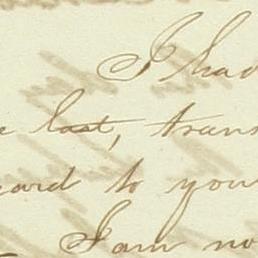 I had
e last, trans
card to your
I am no